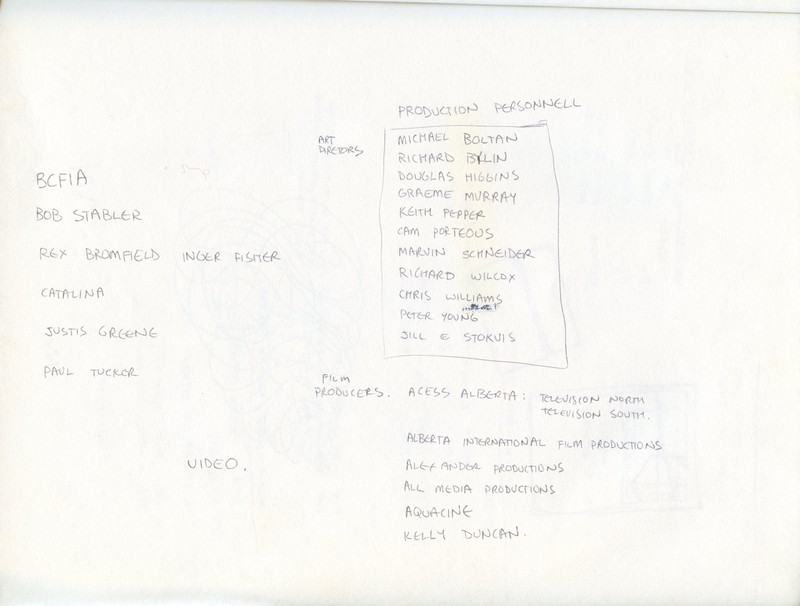 BCFIA
BOB STABLER
REX BROMFIELD INGER FISHER
CATALINA
JUSTIS GREENE
PAUL TUCKER
VIDEO.
PRODUCTION PERSONNELL
ART
DIRETORS
MICHAEL BOLTAN
RICHARD BYLIN
DOUGLAS HIGGINS
GRAEME MURRAY
KEITH PEPPER
CAM PORTEOUS
MARVIN SCHNEIDER
RICHARD WILCOX
CHRIS WILLIAMS
PETER YOUNG
JILL E STOKVIS
FILM
PRODUCERS. ACESS ALBERTA: TELEVISION NORTH
TELEVISION SOUTH.
ALBERTA INTERNATIONAL FILM PRODUCTIONS
ALEXANDER PRODUCTIONS
ALL MEDIA PRODUCTIONS
AQUACINE
KELLY DUNCAN.